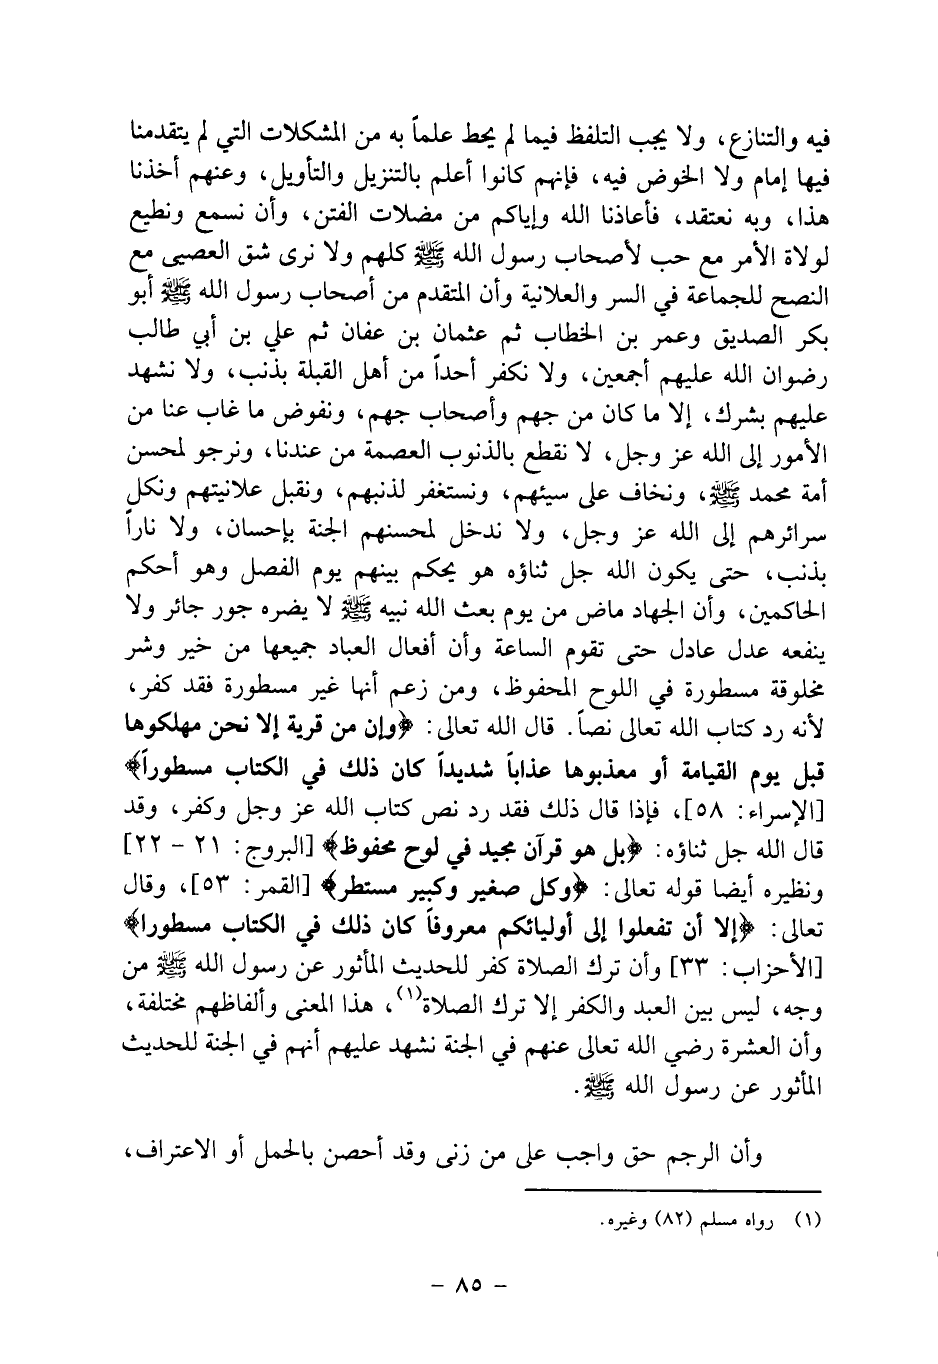 فيه والتنازع، ولا يجب التلفظ فيما لم يحط علماً به من المشكلات التي لم يتقدمنا
فيها إمام ولا الخوض فيه، فإنهم كانوا أعلم بالتنزيل والتأويل، وعنهم أخذنا
هذا، وبه نعتقد، فأعاذنا الله وإياكم من مضلات الفتن، وأن نسمع ونطيع
لولاة الأمر مع حب لأصحاب رسول الله ﷺ كلهم ولا نرى شق العصيى مع
النصح للجماعة في السر والعلانية وأن المتقدم من أصحاب رسول الله ﷺ أبو
بكر الصديق وعمر بن الخطاب ثم عثمان بن عفان ثم علي بن أبي طالب
رضوان الله عليهم أجمعين، ولا نكفر أحداً من أهل القبلة بذنب، ولا نشهد
عليهم بشرك، إلا ما كان من جهم وأصحاب جهم، ونفوض ما غاب عنا من
الأمور إلى الله عز وجل، لا نقطع بالذنوب العصمة من عندنا، ونرجو لمحسن
أمة محمد ﷺ، ونخاف على سيئهم، ونستغفر لذنبهم، ونقبل علانيتهم ونكل
سرائرهم إلى الله عز وجل، ولا ندخل لمحسنهم الجنة بإحسان، ولا ناراً
بذنب، حتى يكون الله جل ثناؤه هو يحكم بينهم يوم الفصل وهو أحكم
الحاكمين، وأن الجهاد ماض من يوم بعث الله نبيه ﷺ لا يضره جور جائر ولا
ينفعه عدل عادل حتى تقوم الساعة وأن أفعال العباد جميعها من خير وشر
مخلوقة مسطورة في اللوح المحفوظ، ومن زعم أنها غير مسطورة فقد كفر،
لأنه رد كتاب الله تعالى نصاً. قال الله تعالى: ﴿وإن من قرية إلا نحن مهلكوها
قبل يوم القيامة أو معذبوها عذاباً شديداً كان ذلك في الكتاب مسطوراً﴾
[الإسراء: ٥٨]، فإذا قال ذلك فقد رد نص كتاب الله عز وجل وكفر، وقد
قال الله جل ثناؤه: ﴿بل هو قرآن مجيد في لوح محفوظ﴾ [البروج: ٢١ - ٢٢]
ونظيره أيضا قوله تعالى: ﴿وكل صغير وكبير مستطر﴾ [القمر: ٥٣]، وقال
تعالى: ﴿إلا أن تفعلوا إلى أوليائكم معروفاً كان ذلك في الكتاب مسطورا﴾
[الأحزاب: ٣٣] وأن ترك الصلاة كفر للحديث المأثور عن رسول الله ﷺ من
وجه، ليس بين العبد والكفر إلا ترك الصلاة(١)، هذا المعنى وألفاظهم مختلفة،
وأن العشرة رضي الله تعالى عنهم في الجنة نشهد عليهم أنهم في الجنة للحديث
المأثور عن رسول الله ﷺ.
وأن الرجم حق واجب على من زنى وقد أحصن بالحمل أو الاعتراف،
(١) رواه مسلم (٨٢) وغيره.
- ٨٥ -